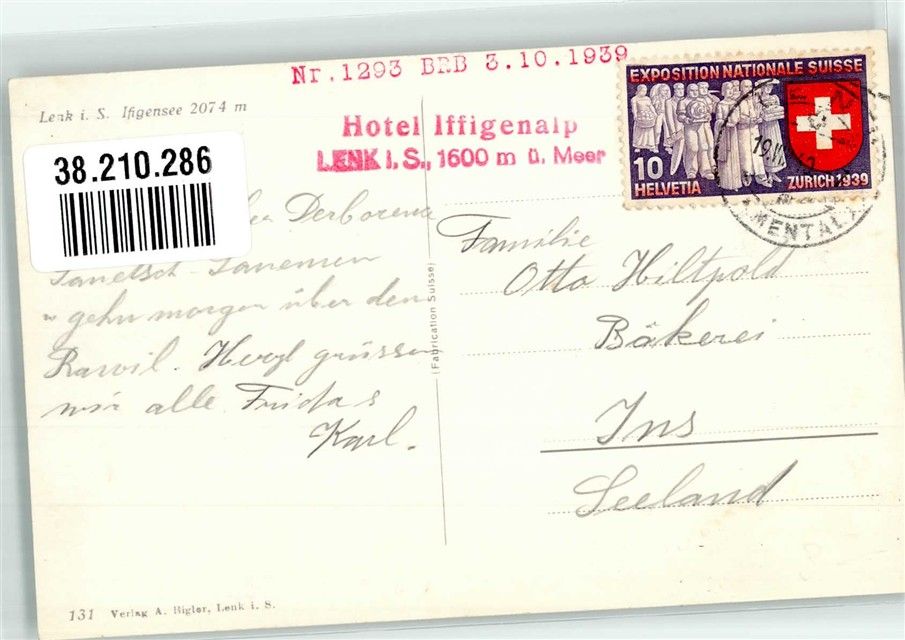 Nr. 1293 BRB 3.10.1939
Lenk i. S. Ifigensee 2074 m
Hotel Iffigenalp
LENK i. S., 1600 m ü. Meer
EXPOSITION NATIONALE SUISSE
10
HELVETIA
ZURICH 1939
MENTAL
38.210.286
Derborence
Sanetsch - Lauenen
gehn morgen über den
Rawil. Herzl grüssen
wir alle Frida &
Karl.
(Fabrication Suisse)
Familie
Otto Hiltpold
Bäkerei
Ins
Seeland
131 Verlag A. Bigler, Lenk i. S.